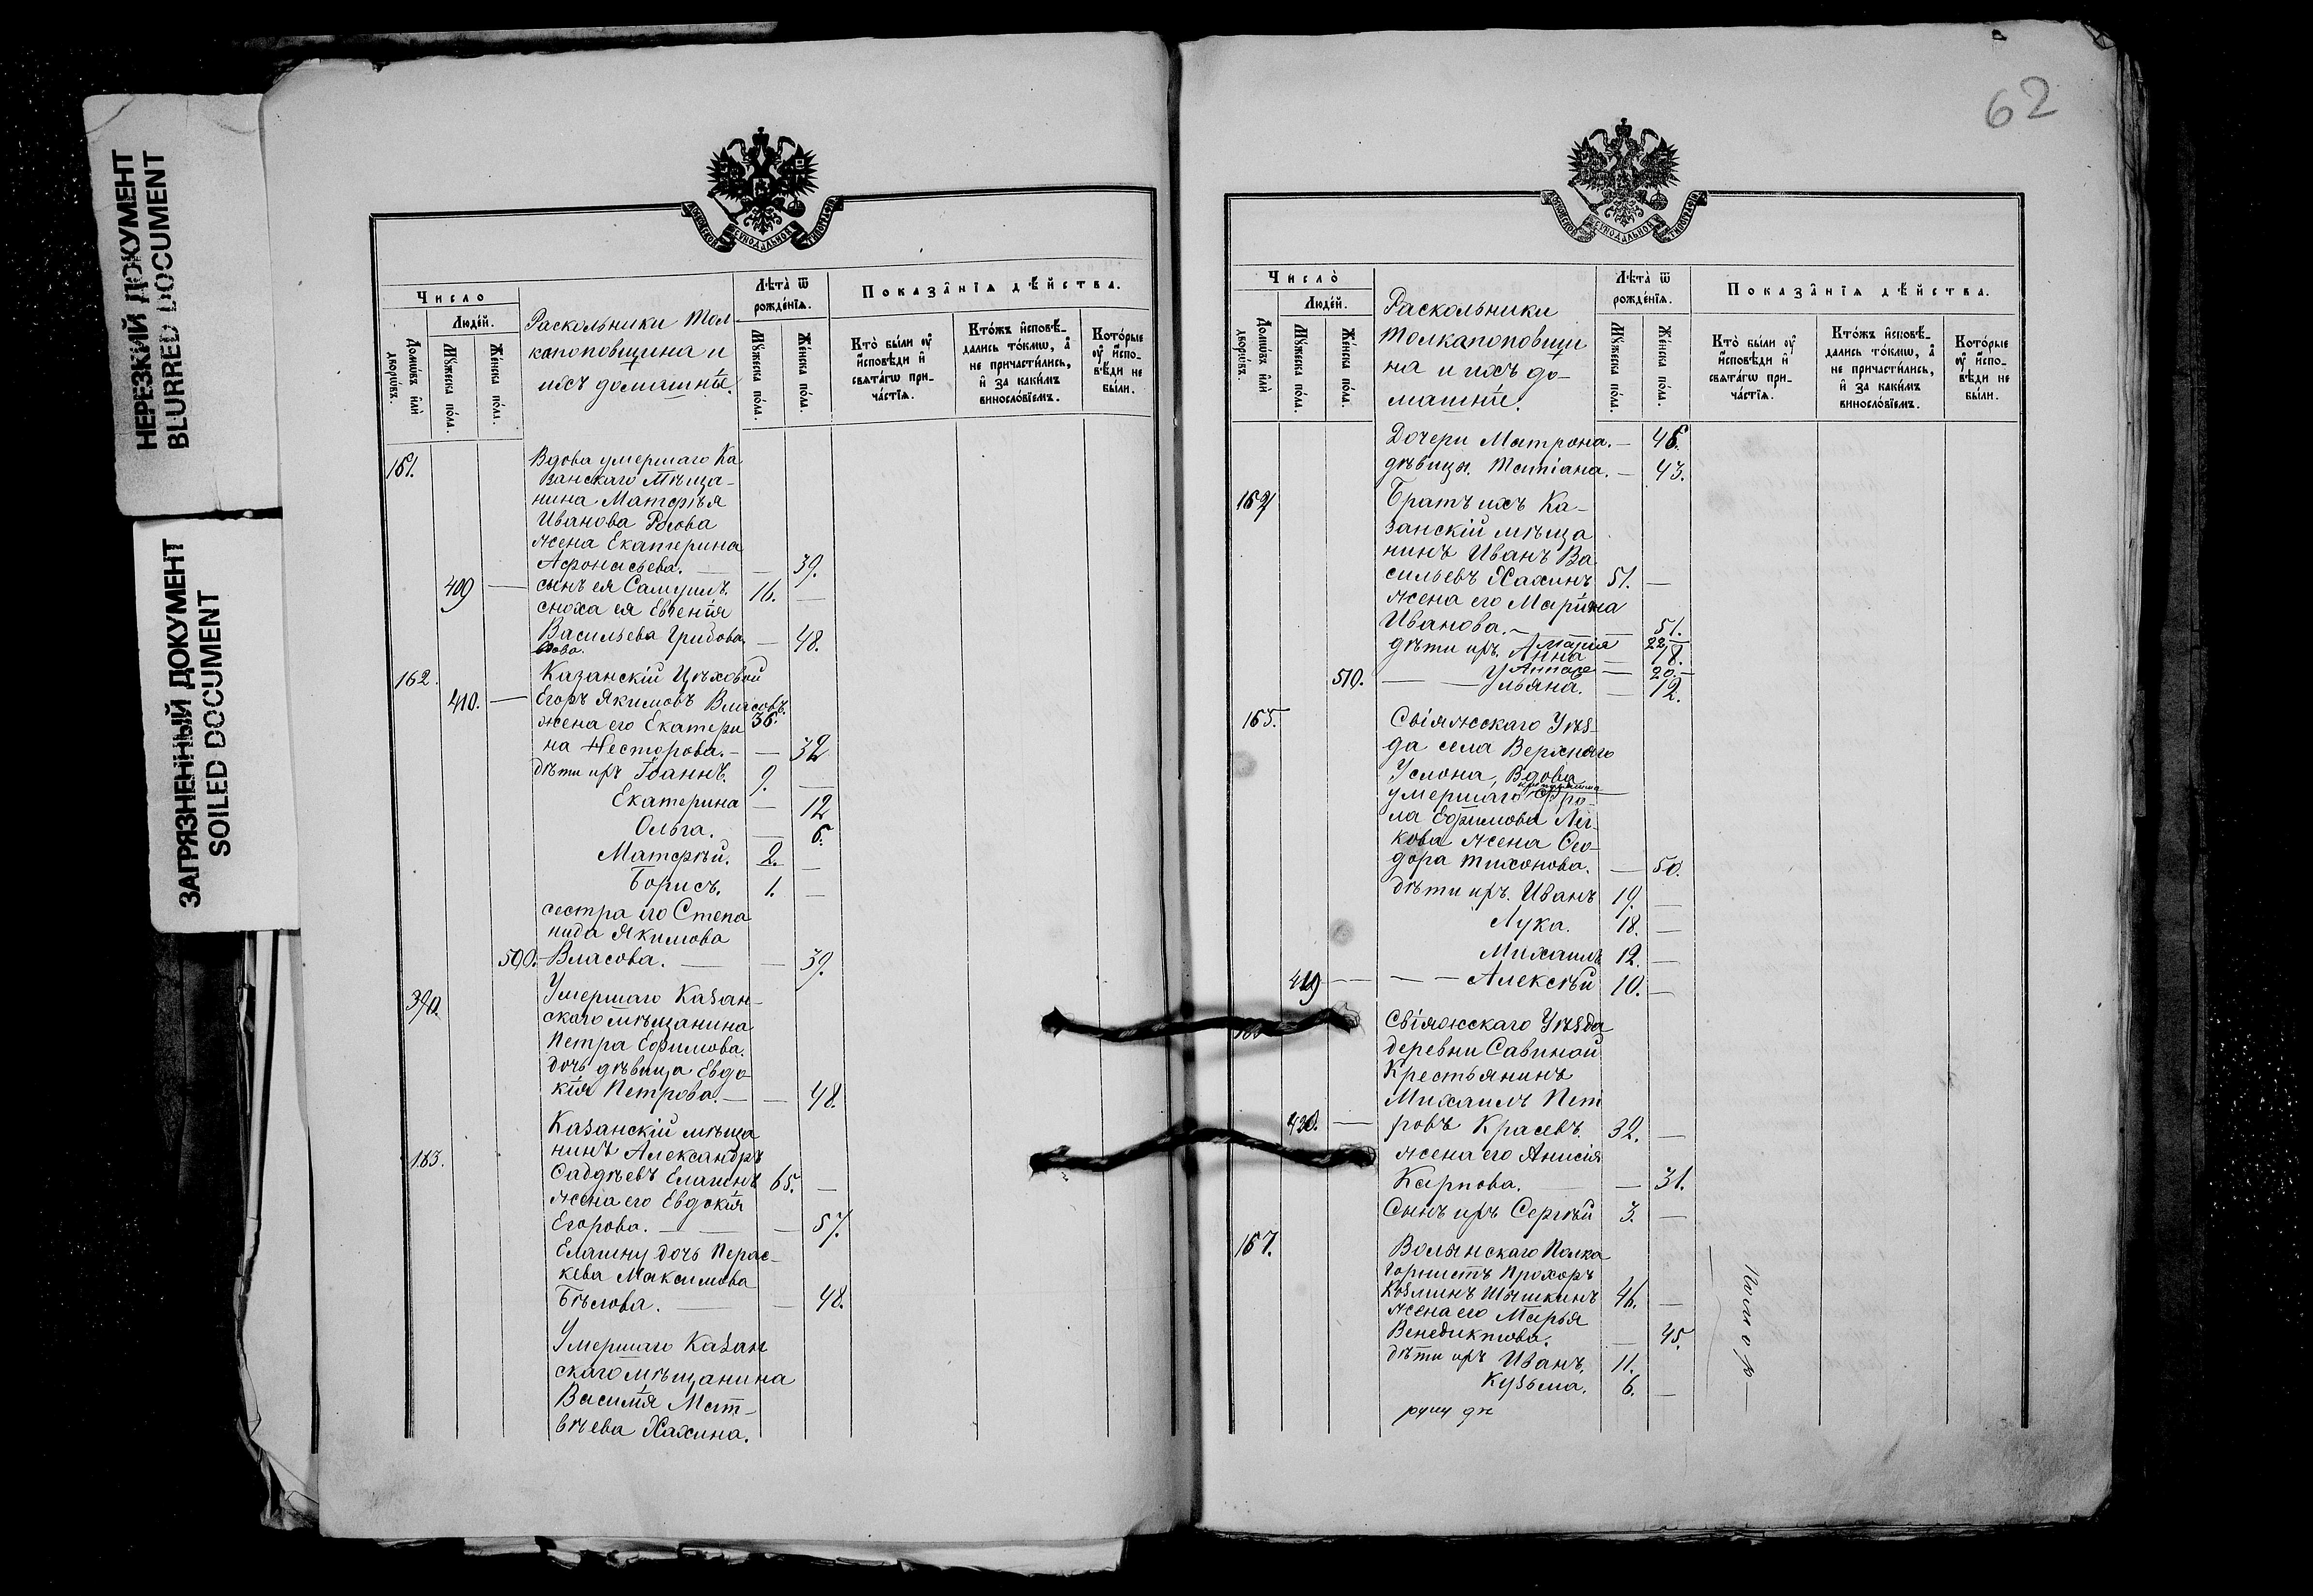 НЕРЕЗКИЙ ДОКУМЕНТ
BLURRED DOCUMENT
ЗАГРЯЗНЕННЫЙ ДОКУМЕНТ
SOILED DOCUMENT
МОСКОВСКОЙ СѴНОДАЛЬНОЙ ТИПОГРАФІИ
Число
Домѡвъ и҆лѝ дворѡвъ.
Люде́й.
Мꙋ́жеска по́ла.
Же́нска по́ла.
Раскольники тол
ка поповщина и
ихъ домашніе.
Лѣта̀ ѿ рожде́нїѧ.
Мꙋ́жеска по́ла.
Же́нска по́ла.
Показа̑нїѧ дѣ́йства.
Кто̀ бы́ли ᲂу҆ и҆сповѣ́ди и҆ свѧта́гѡ при-
ча́стїѧ.
Кто́жъ и҆сповѣ́-
дались то́кмѡ, а҆
не причасти́лись,
и҆ за каки́мъ
винослові́емъ.
Кото́рые
ᲂу҆ и҆спо-
вѣ́ди не
бы́ли.
161. Вдова умершаго Ка
занскаго Мѣща-
нина Матѳѣя
Иванова Рогова
жена Екатерина
Афонасьева. — — 39.
409 — сынъ ея Самуилъ. 16. —
сноха ея Евгенія
Васильева Грибова — 48.
вдова.
162. Казанскій Цѣховой
410. — Егоръ Якимовъ Власовъ. 36.
жена его Екатери
на Несторова. — — 32
дѣти ихъ Іоаннъ. 9. —
Екатерина — 12
Ольга. — 6.
Матѳѣй. 2. —
Борисъ. 1. —
сестра его Степа
нида Якимова
500. Власова. — — 39.
Умершаго Казан-
скаго мѣщанина
Петра Ефимова.
дочь дѣвица Евдо
кія Петрова. — — 48.
Казанскій мѣща
163. нинъ Александръ
65. —
жена его Евдокія
Егорова. — — 57.
дочь Перас-
кева Максимова
Бѣлова. — — 48.
Умершаго Казан
скаго мѣщанина
Василія Мат-
вѣева Хахина.
62
МОСКОВСКОЙ СѴНОДАЛЬНОЙ ТИПОГРАФІИ
Число̀
Домѡвъ и҆лѝ дворѡвъ.
Люде́й.
Мꙋ́жеска по́ла.
Же́нска по́ла.
Раскольники
толка поповщи
на и ихъ до-
машніе.
Лѣта̀ ѿ рожде́нїѧ.
Мꙋ́жеска по́ла.
Же́нска по́ла.
Показа̑нїѧ дѣ́йства.
Кто̀ бы́ли ᲂу҆
и҆сповѣ́ди и҆
свѧта́гѡ при-
ча́стїѧ.
Кто́жъ и҆сповѣ́-
дались то́кмѡ, а҆
не причасти́лись,
и҆ за каки́мъ
винослові́емъ.
Кото́рые
ᲂу҆ и҆спо-
вѣ́ди не
бы́ли.
Дочери Матрона. — 46.
дѣвицы. Татіана. — 43.
Братъ ихъ Ка-
занскій мѣща
нинъ Иванъ Ва
сильевъ Хахинъ 51. —
жена его Марина
Иванова. — — 51.
дѣти ихъ. Марія 22
Анна — 18.
20.
510. — Ульяна. — 12.
165. Свіяжскаго Уѣз-
да села Верхняго
Услона, Вдова
умершаго Фро-
ла Ефимова
жена Ѳео-
дора Тихонова. — 50.
дѣти ихъ. Иванъ 19. —
Лука. 18. —
Михаилъ 12. —
419 — — Алексѣй 10. —
Свіяжскаго Уѣзда
деревни Савиной
Крестьянинъ
Михаилъ Пет
420. — ровъ Красевъ. 32. —
жена его Анисія
Карпова. — — 31.
Сынъ ихъ Сергѣй 3. —
167. Волынскаго Полка
Горнистъ Прохоръ
Козминъ Шишкинъ 46. —
жена его Марья
Венедиктова. — 45.
дѣти ихъ Иванъ. 11.
Кузьма. 6. —